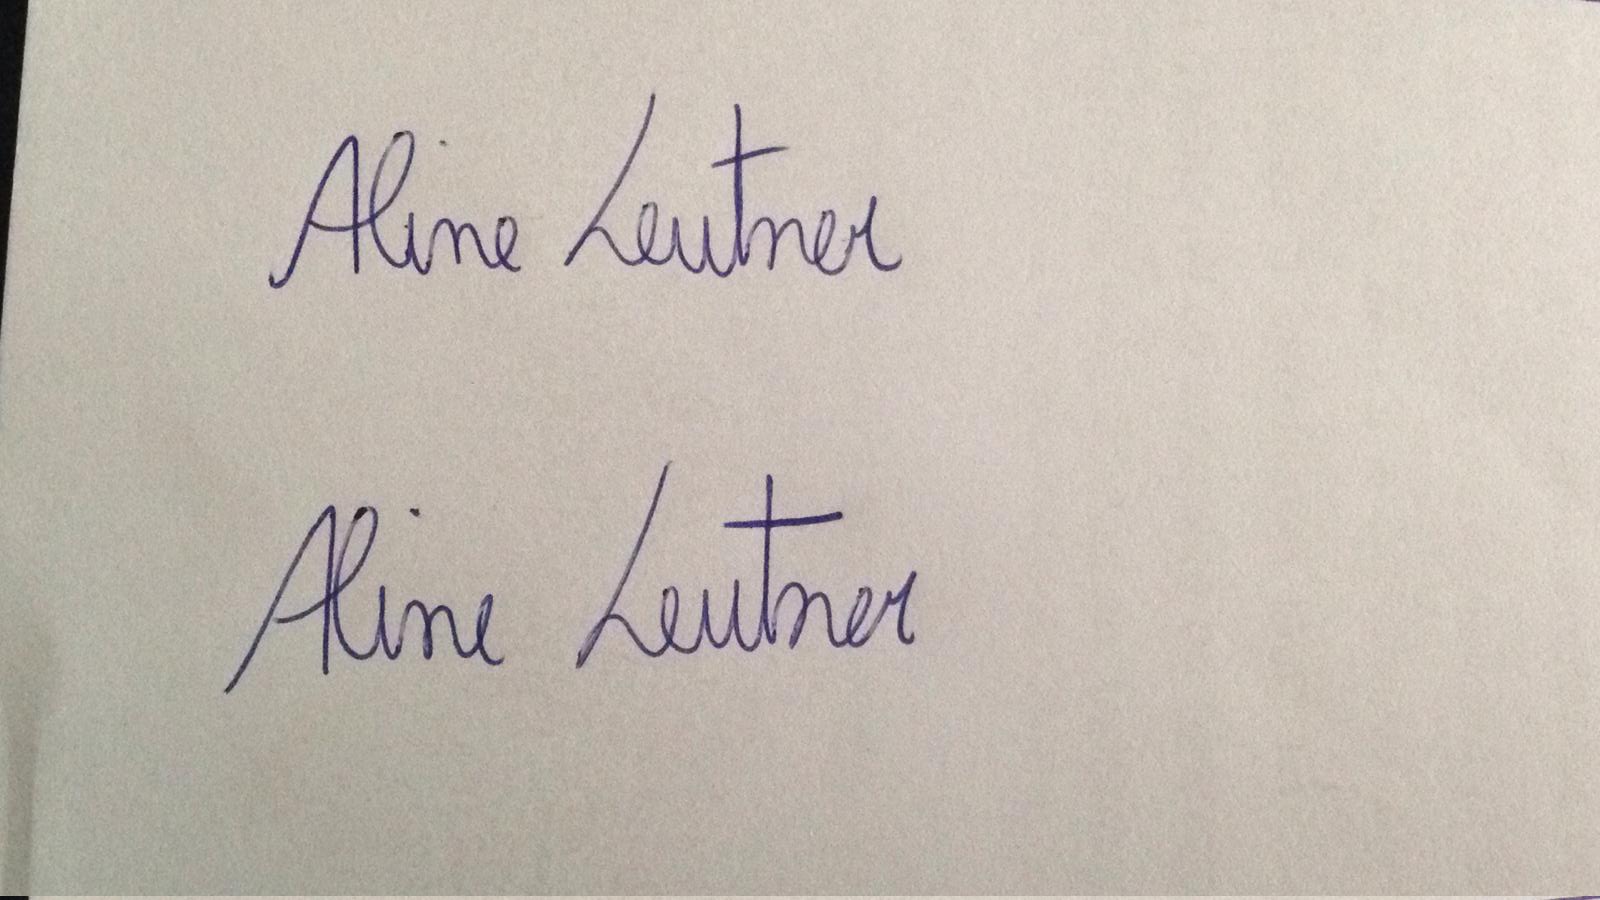 Aline Leutner
Aline Leutner